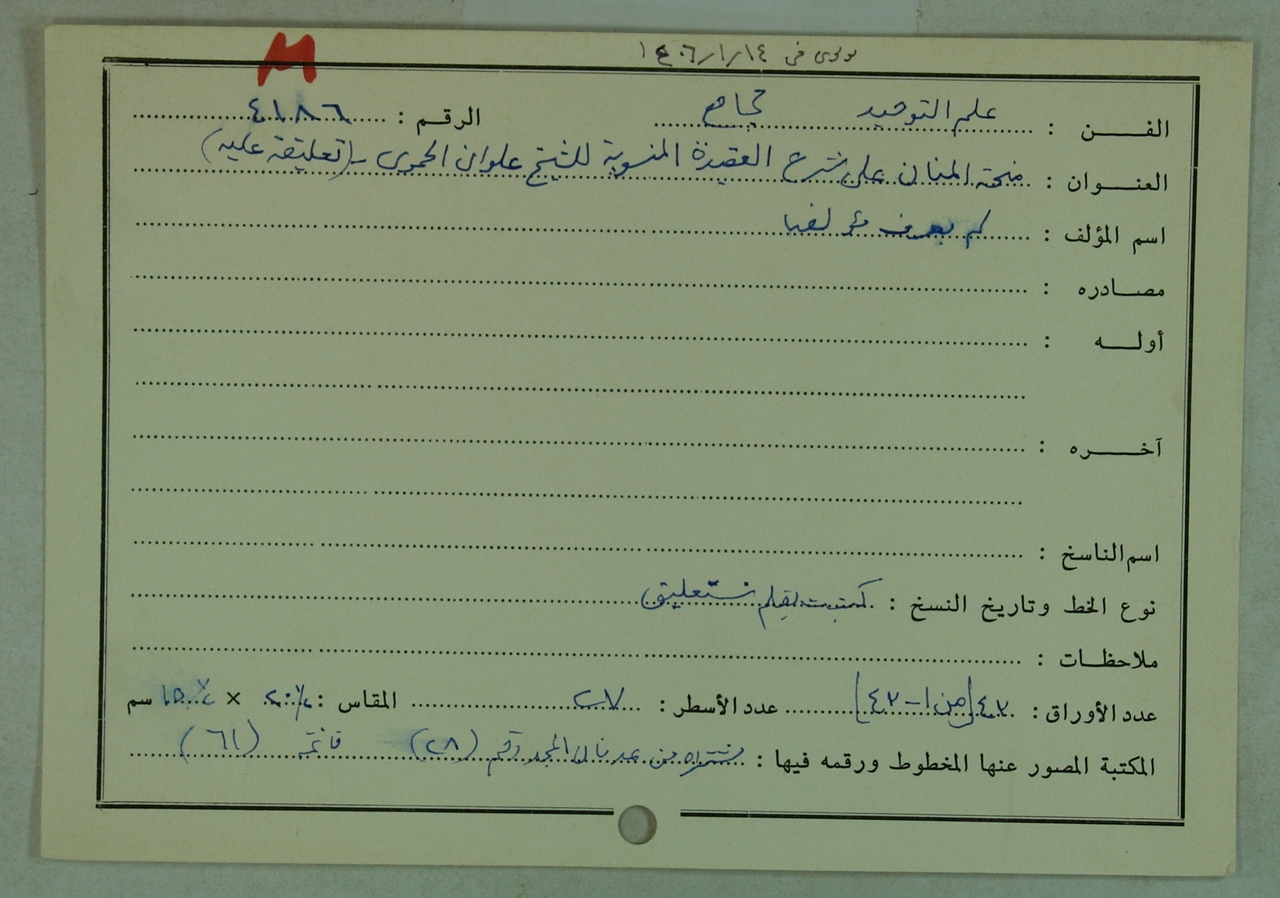 M
في ١٤/١/١٤٠٦
الفـــن : علم التوحيد مجاميع الرقـم : ٤١٨٦
العنـــوان : منحة المنان على شرح العقيدة المنسوبة للشيخ علوان الحموي - (تعليقة عليه)
اسم المؤلف : لم يعرف مؤلفها
مصـادره :
أولــه :
آخــره :
اسم الناسخ :
نوع الخط وتاريخ النسخ : كتبت بقلم نستعليق
ملاحظـات :
عدد الأوراق : ٤٢ [من ١-٤٢] عدد الأسطر : ٢٧ المقاس : × سم
المكتبة المصور عنها المخطوط ورقمه فيها : من عدنان المجد رقم (٢٨) قائمة (٦١)